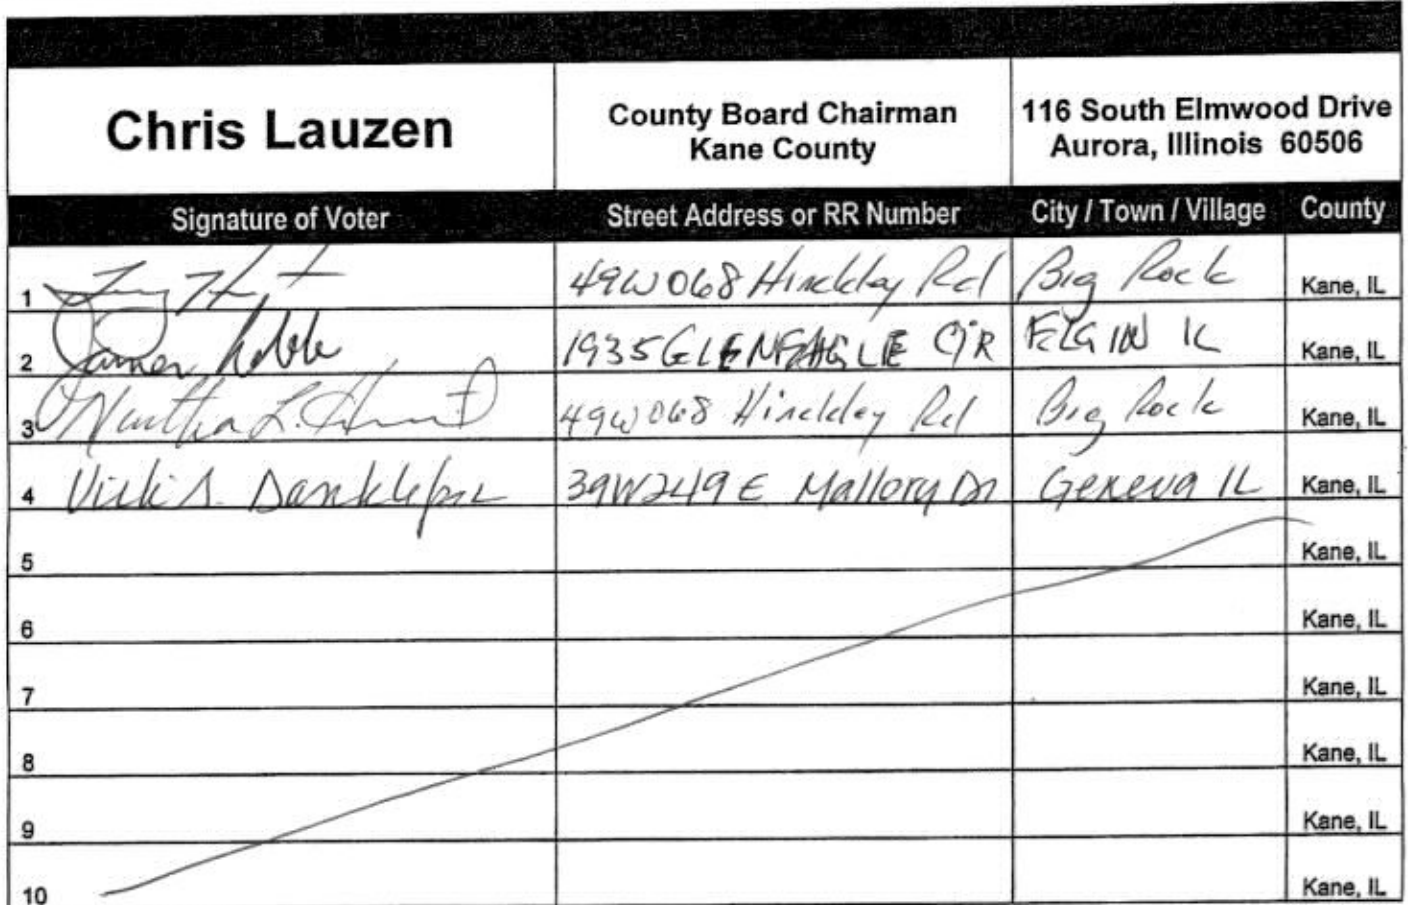 Chris Lauzen
County Board Chairman
Kane County
116 South Elmwood Drive
Aurora, Illinois 60506
Signature of Voter Street Address or RR Number City / Town / Village County
1 49W068 Hinckley Rd Big Rock Kane, IL
2 James 1935 GLENEAGLE CIR ELGIN IL Kane, IL
3 Martha L. Hunt 49W068 Hinckley Rd Big Rock Kane, IL
4 Vicki S. 39W249 E Mallory Dr Geneva IL Kane, IL
5 Kane, IL
6 Kane, IL
7 Kane, IL
8 Kane, IL
9 Kane, IL
10 Kane, IL